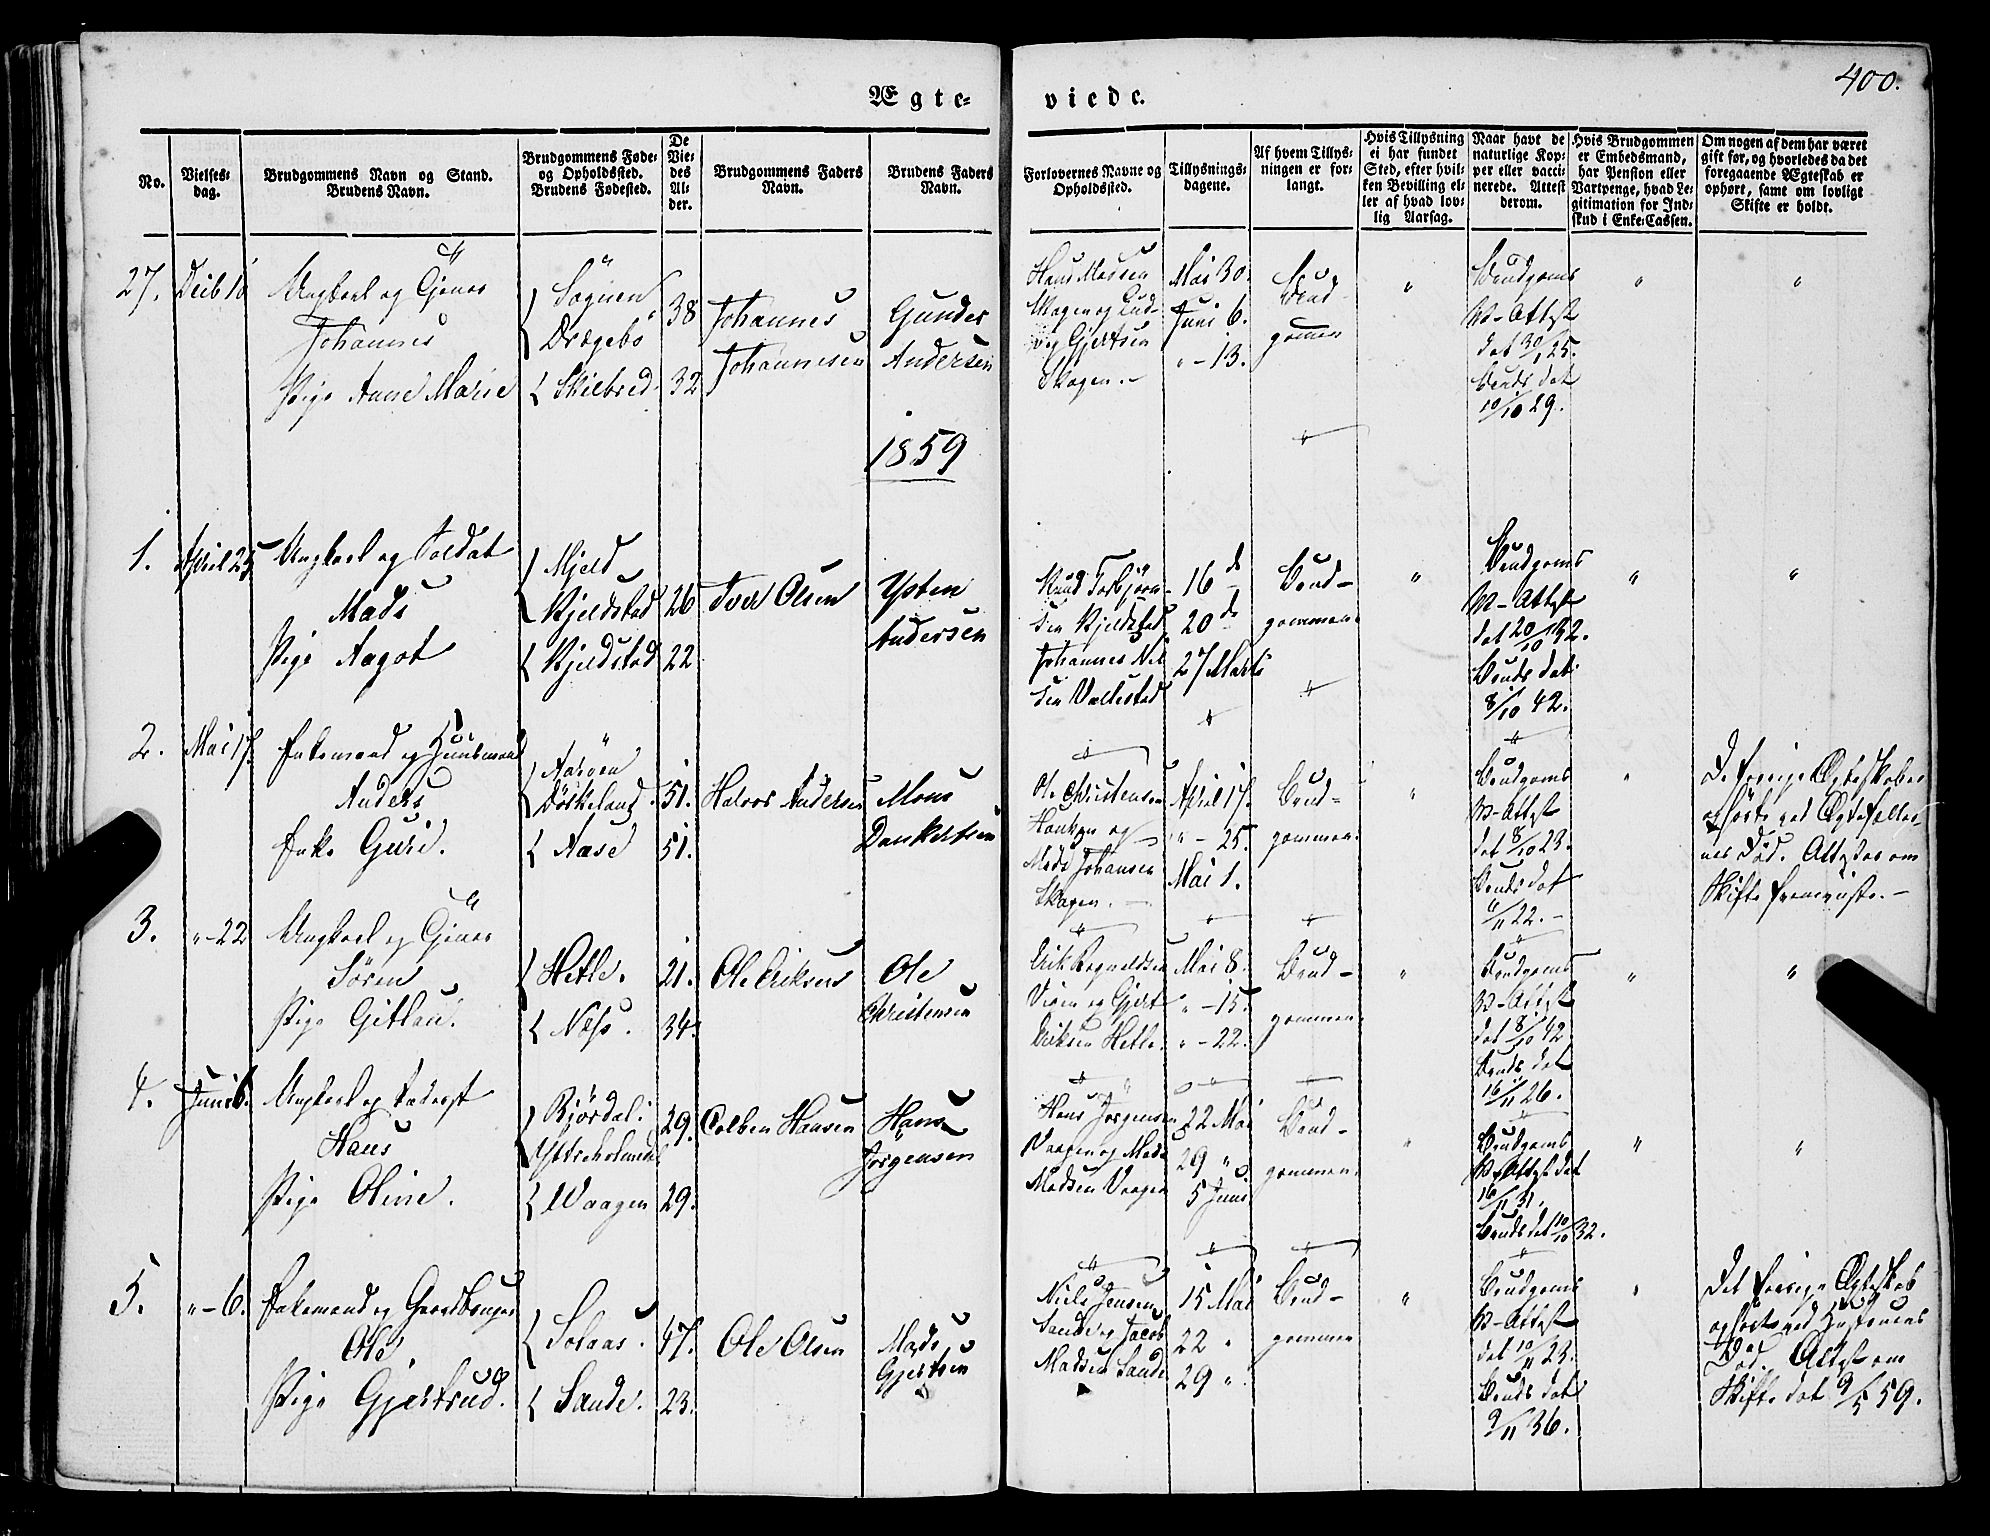 400.
Ægte- viede.
No.
Vielses-
dag.
Brudgommens Navn og Stand.
Brudens Navn.
Brudgommens Føde-
og Opholdssted.
Brudens Fødested.
De
Vie-
des
Al-
der.
Brudgommens Faders
Navn.
Brudens Faders
Navn.
Forlovernes Navne og
Opholdssted.
Tillysnings-
dagene.
Af hvem Tillys-
ningen er for-
langt.
Hvis Tillysning
ei har fundet
Sted, efter hvil-
ken Bevilling el-
ler af hvad lov-
lig Aarsag.
Naar havt de
naturlige Kop-
per eller vacci-
nerede. Attest
derom.
Hvis Brudgommen
er Embedsmand,
har Pension eller
Vartpenge, hvad Le-
gitimation for Ind-
skud i Enke-Cassen.
Om nogen af dem har været
gift før, og hvorledes da det
foregaaende Ægteskab er
ophørt, samt om lovligt
Skifte er holdt.
27.
Ungkarl og
Johannes
Pige Anne Marie
Drægebö
Skilbred
38
32
Johannes
Johannesen
Gunder
Andersen
Hans Madsen
Skagen og Lud-
vig Gjertsen
Skagen.
Mai 30.
Juni 6.
" - 13.
Brud-
gommen
"
Brudgoms
V-Attest
dat 30/1 25.
Bruds dat
10/10 29.
"
"
1859
1.
April 25
Ungkarl og Soldat
Mads
Pige Aagot
Mjeld
Kjeldstad
Kjeldstad
26
22
Iver Olsen
Ysten
Andersen
Knud Torbjørn-
sen Kjeldstad
Johannes Nil
sen Vallestad
16 ds
20 ds
27 Marts
Brud-
gommen
"
Brudgoms
V-Attest
dat 20/10 32.
Bruds dat
8/10 42.
"
"
2.
Mai 17.
Enkemand og Huusmand
Anders
Enke Guri.
Dörkeland
Aase
51.
51.
Halvor Andersen
Mons
Dankertsen
Ole Christensen
og
Mads Johansen
Skagen.
April 17.
" - 25.
Mai 1.
Brud-
gommen.
"
Brudgoms
V-Attest
dat 8/10 23.
Bruds dat
/11 22.
"
De forrige Ægteskaber
ophørte ved Ægtefæller-
nes Död. Attester om
Skifte fremviiste.
3.
" - 22
Ungkarl og
Sören
Pige Gitlau.
Hetle.
Næss.
21.
34.
Ole Eriksen
Ole
Christensen
Erik Rognaldsen
og Gjert
Eriksen Hetle.
Mai 8.
" - 15.
" - 22.
Brud-
gommen
"
Brudgoms
V-Attest
dat 8/10 42
Bruds dat
16/11 26.
"
"
4.
Juni 6.
Ungkarl og
Hans
Pige Oline.
Rjördal.
Vaagen
29.
29.
Colben Hansen
Hans
Jörgensen
Hans Jörgensen
Vaagen og Mads
Madsen Vaagen
22 Mai
29 "
5 Juni
Brud-
gommen.
"
Brudgoms
V-Attest dat
16/11 31.
Bruds dat 10/10 32.
"
"
5.
" - 6.
Enkemand og Gaardbruger
Ole
Pige Gjertrud.
Solaas.
Sande.
47.
23.
Ole Olsen
Mads
Gjertsen
Niels Jensen
Sande og Jacob
Madsen Sande
15 Mai
22 "
29 "
Brud-
gommen
"
Brudgoms
V-Attest
dat 10/11 23.
Bruds dat
9/11 36.
"
Det forrige Ægteskab
ophört ved Hustruens
Död. Attest om
Skifte dat 9/5 59.